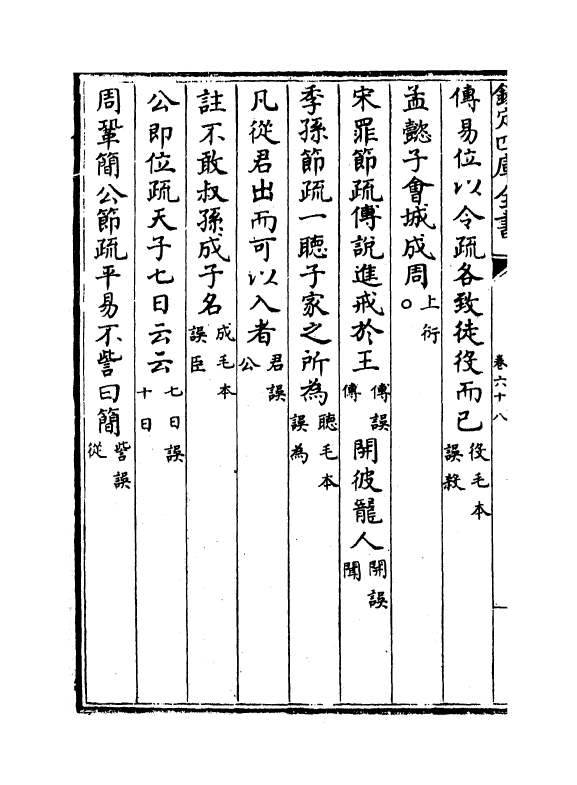 欽定四庫全書
卷六十八
傳易位以令疏各致徒役而已役毛本誤殺
孟懿子會城成周○上衍
宋罪節疏傅說進戒於王傅誤傳開彼寵人開誤聞
季孫節疏一聽子家之所為聽毛本誤為
凡從君出而可以入者君誤公
註不敢叔孫成子名成毛本誤臣
公即位疏天子七日云云七日誤十日
周鞏簡公節疏平易不訾曰簡訾誤從